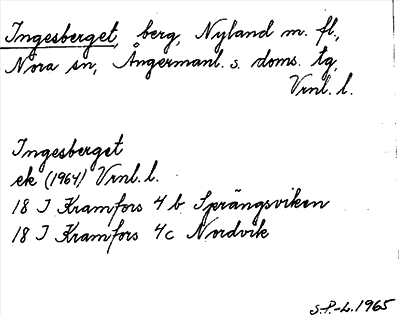 Ingesberget, berg, Nyland m. fl.,
Nora sn, Ångermanl. s. doms. tg,
Vrnl. l.
Ingesberget
ek (1964) Vrnl. l.
18 I Kramfors 4 b Sprängsviken
18 I Kramfors 4c Nordvik
S.P.-L. 1965